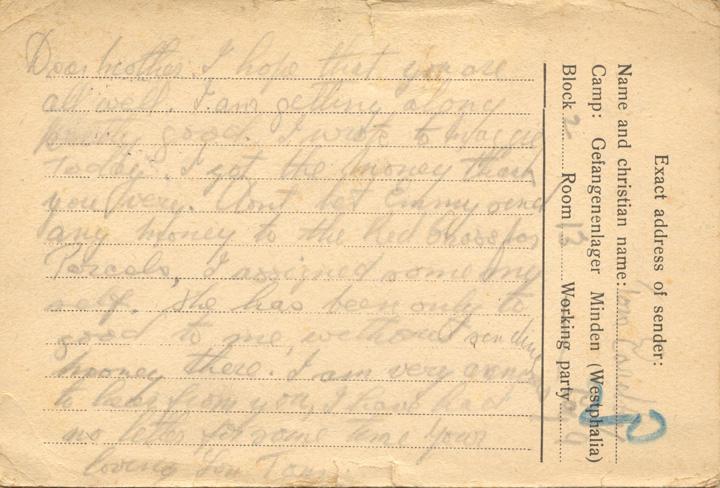 Dear mother, I hope that you are
all well. I am getting along
pretty good. I wrote to Maggie
Today. I got the money thank
you very. Dont let Emmy send
any money to the Red Cross for
Parcels, I assigned some my
self. She has been only to
good to me, without sending
money there. I am very anxious
to hear from you, I have had
no letter for some time your
loving Son Tom
Exact address of sender:
Name and christian name: Tom
Camp: Gefangenenlager Minden (Westphalia)
Block 2 Room 13 Working party